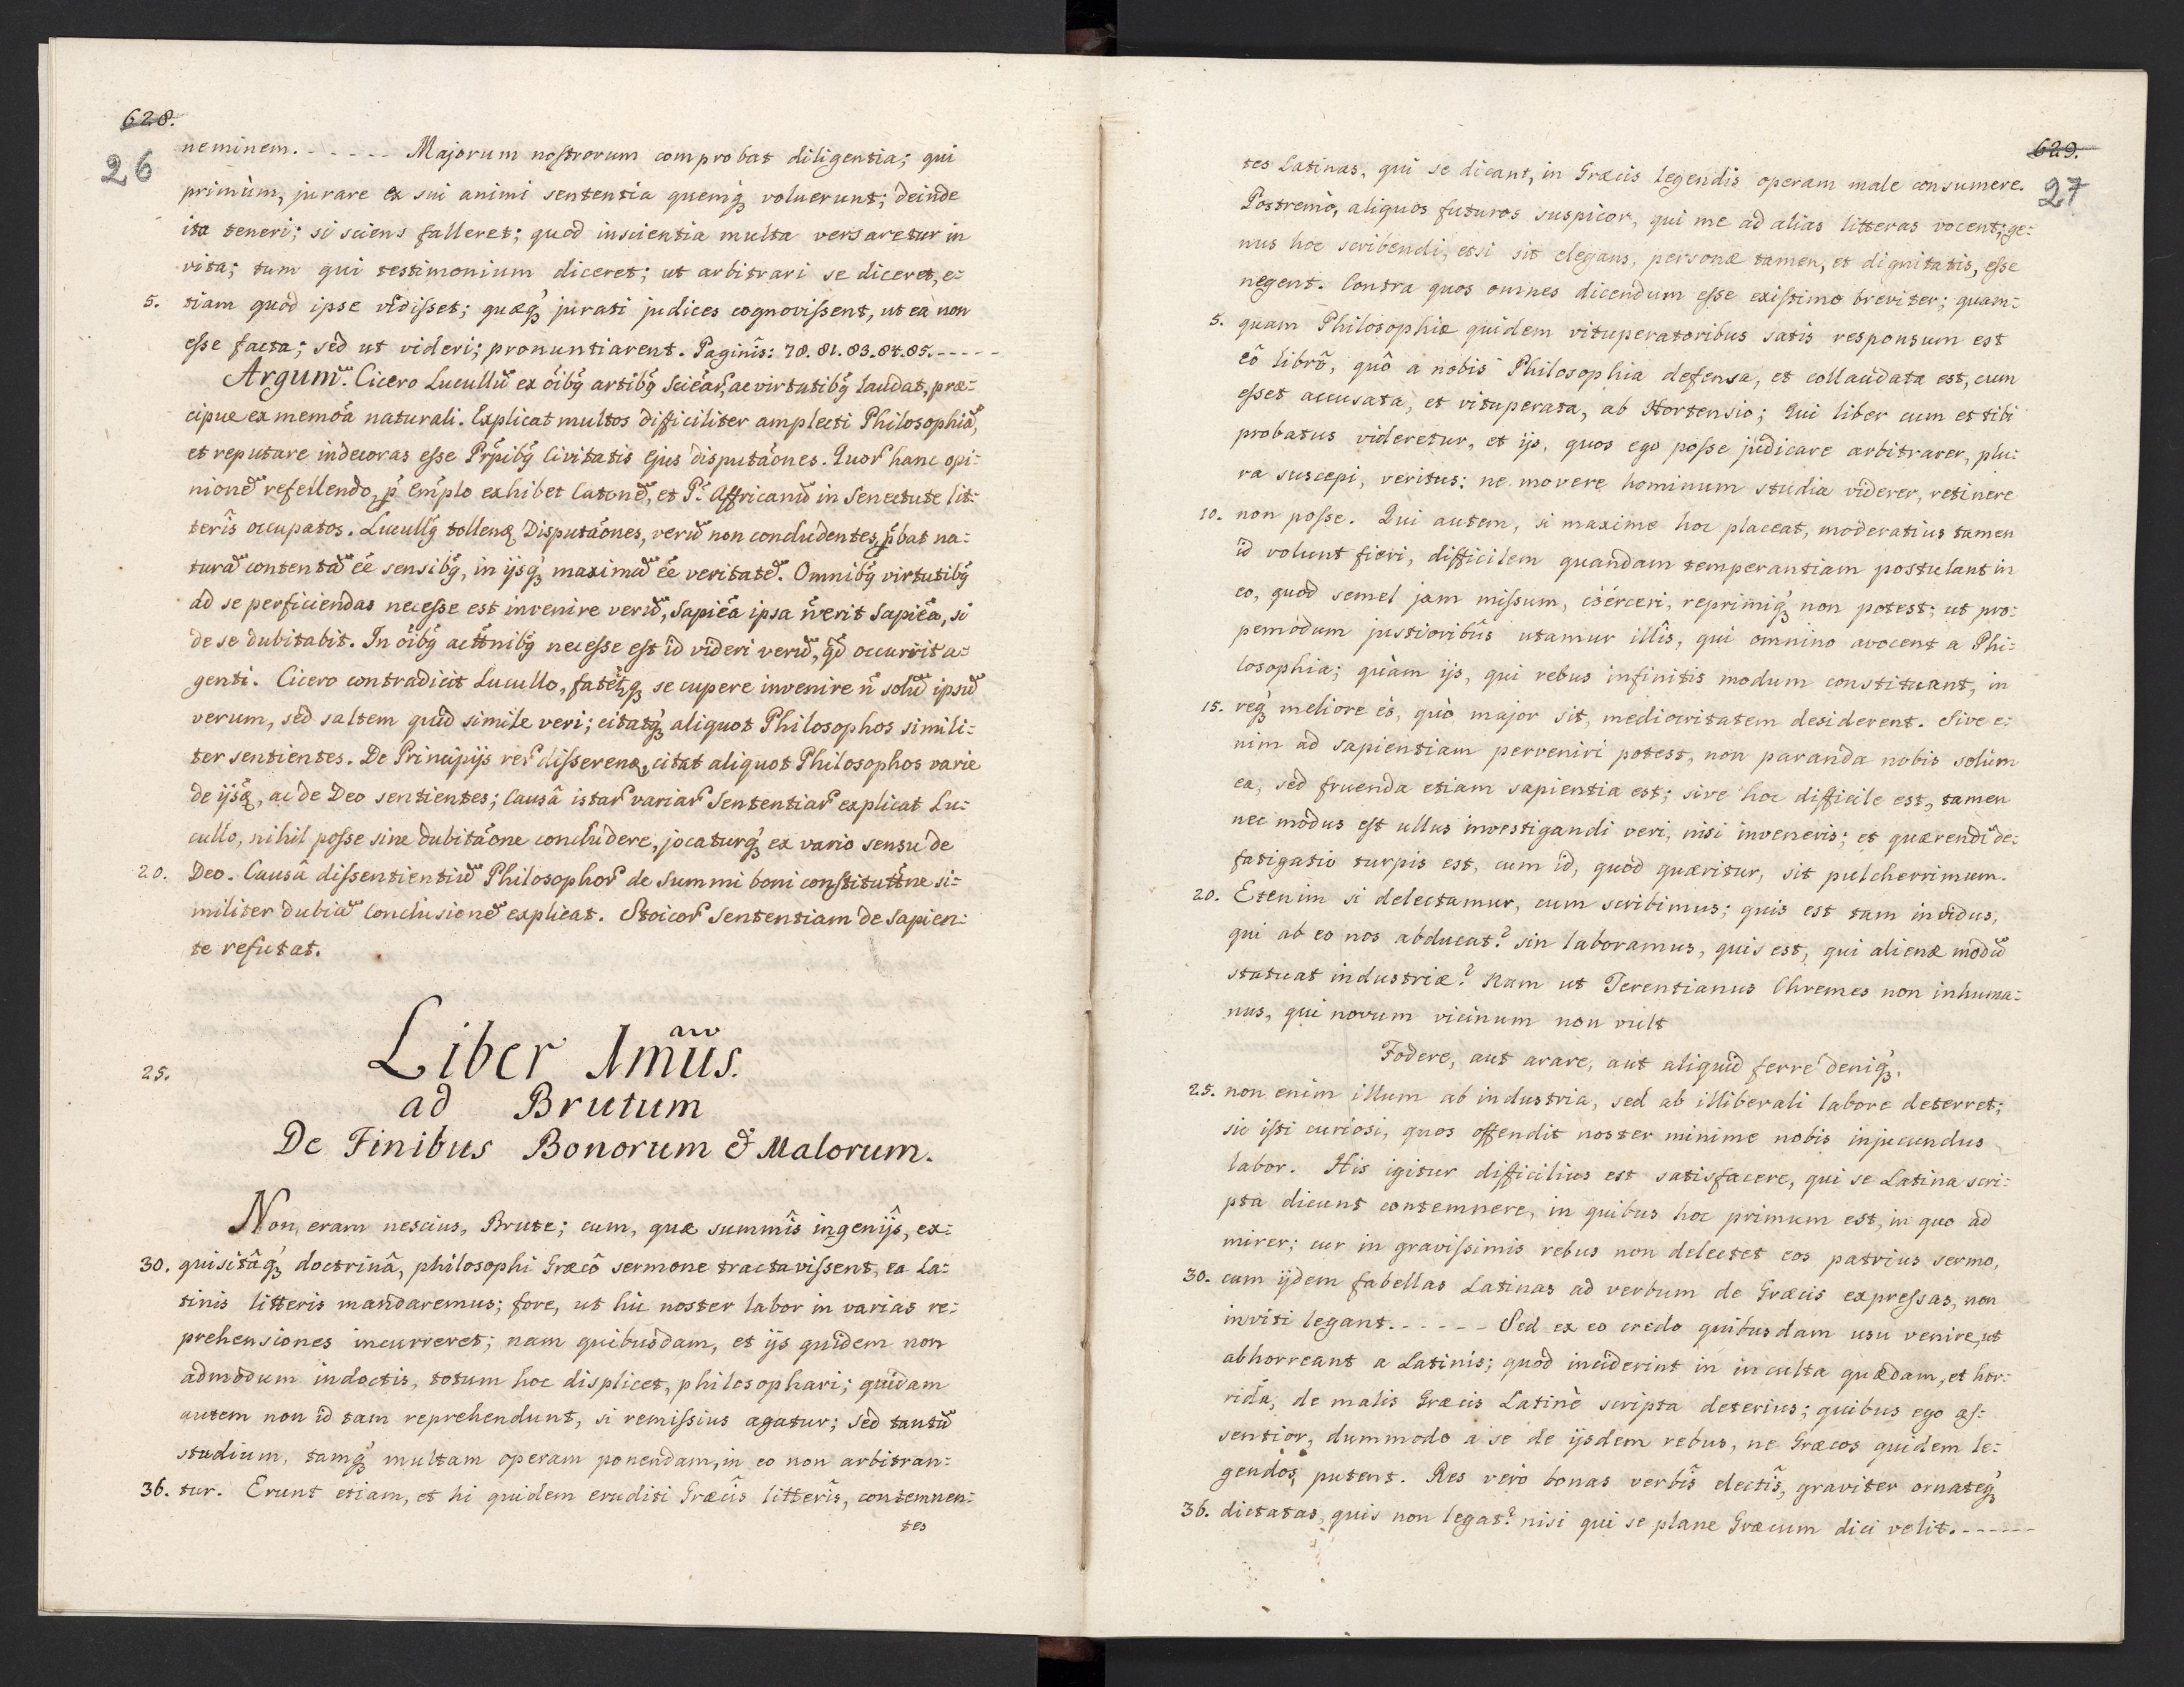 628.
26
neminem. - - - - - - Majorum noſtrorum comprobat diligentia; qui
primùm, jurare ex sui animi sententia quemq́ꝫ voluerunt; deinde
ita teneri; si sciens falleret; quod inscientia multa versaretur in
vita; tum qui testimonium diceret; ut arbitrari se diceret, e-
5. tiam quod ipse vidiſset; quæq́ꝫ jurati judices cognoviſsent, ut ea non
eſse facta; sed ut videri; pronuntiarent. Paginîs: 78. 81. 83. 84. 85. - - - - -
Argum̃. Cicero Lucullũ ex óibꝯ artibꝯ Sciéaꝝ, ac virtutibꝯ laudat, præ-
cipue ex memóa naturali. Explicat multos difficiliter amplecti Philosophiã,
et reputare indecoras eſse Pr̃pibꝯ Civitatis Ejus disputáones. Quoꝝ hanc opi-
nionẽ refellendo, ꝓ Emplo exhibet Catonẽ, et P: Affricanũ in Senectute lit-
terîs occupatos. Lucullꝯ tollens Disputáones, verũ non concludentes, ꝓbat na-
turã contentã éé sensibꝯ, in ijsq́ꝫ maximã éé veritatẽ. Omnibꝯ virtutibꝯ
ad se perficiendas neceſse est invenire verũ, Sapiéa ipsa ñ erit Sapiéa, si
de se dubitabit. In óibꝯ acttnibꝯ neceſse eſt id videri verũ, qd̃ occurrit a-
genti. Cicero contradicit Lucullo, fatetꝫqꝫ se cupere invenire ñ solũ ipsũ
verum, sed saltem quid simile veri; citatq́ꝫ aliquot Philosophos simili-
ter sentientes. De Principijs reꝝ diſserens, citat aliquot Philosophos varie
de ijsd, ac de Deo sentientes; Causâ istaꝝ variaꝝ Sententiaꝝ explicat Lu-
cullo, nihil poſse sine dubitáone concludere, jocaturq́ꝫ ex vario sensu de
20. Deo. Causâ diſsentientiũ Philosophoꝝ de Summi boni conſtituttne si-
militer dubiã conclusionẽ explicat. Stoicoꝝ Sententiam de Sapien-
te refutat.
25. Liber 1mũs.
ad Brutum
De Finibus Bonorum & Malorum.
Non, eram nescius, Brute; cum, quæ summîs ingenijs, ex-
30. quisitâq́ꝫ doctrinâ, philosophi Græcô sermone tractaviſsent, ea La-
tinis litteris mandaremus; fore, ut hic noster labor in varias re-
prehensiones incurreret; nam quibusdam, et ijs quidem non
admodum indoctis, totum hoc displicet, philosophari; quidam
autem non id tam reprehendunt, si remiſsius agatur; sed tantũ
studium, tamq́ꝫ multam operam ponendam, in eo non arbitran-
36. tur. Erunt etiam, et hi quidem eruditi Græcîs litterîs, contemnen-
tes
629.
27
tes Latinas, qui se dicant, in Græcis legendis operam male consumere.
Postremò, aliquos futuros suspicor, qui me ad alias litteras vocent; ge-
nus hoc scribendi, etsi sit elegans, personæ tamen, et dignitatis, eſse
negent. Contra quos omnes dicendum eſse exiſtimo breviter; quam-
5. quam Philosophiæ quidem vituperatoribus satis responsum est
eô librô, quô a nobis Philosophia defensa, et collaudata est, cum
eſset accusata, et vituperata, ab Hortensio; Qui liber cum et tibi
probatus videretur, et ijs, quos ego poſse judicare arbitrarer, plu-
ra suscepi, veritus: ne movere hominum studia viderer, retinere
10. non poſse. Qui autem, si maxime hoc placeat, moderatius tamen
id volunt fieri, difficilem quandam temperantiam postulant in
eo, quod semel jam miſsum, coërceri, reprimiq́ꝫ non potest; ut pro-
pemodum justioribûs utamur illîs, qui omnino avocent a Phi-
losophia; quàm ijs, qui rebus infinitis modum constituant, in
15. req́ꝫ meliore eò, quò major sit, mediocritatem desiderent. Sive e-
nim ad sapientiam perveniri potest, non paranda nobis solùm
ea, sed fruenda etiam sapientia est; sive hoc difficile est, tamen
nec modus eſt ullus investigandi veri, nisi inveneris; et quærendi de-
fatigatio turpis est, cum id, quod quæritur, sit pulcherrimum.
20. Etenim si delectamur, cum scribimus; quis est tam invidus,
qui ab eo nos abducat? sin laboramus, quis est, qui alienæ modũ
statuat industriæ? Nam ut Terentianus Chremes non inhuma-
nus, qui novum vicinum non vult
Fodere, aut arare, aut aliquid ferre deniq́ꝫ,
25. non enim illum ab industria, sed ab illiberali labore deterret;
sic iſti curiosi, quos offendit noster minime nobis injucundus
labor. His igitur difficilius est satisfacere, qui se Latina scri-
pta dicunt contemnere, in quibus hoc primum est, in quo ad
mirer; cur in graviſsimis rebus non delectet eos patrius sermo,
30. cum ijdem fabellas Latinas ad verbum de Græcis expreſsas, non
inviti legant. - - - - - - Sed ex eo credo quibusdam usu venire, ut
abhorreant a Latinis; quod inciderint in inculta quædam, et hor-
rida, de malis Græcis Latinè scripta deterius; quibus ego aſ-
sentior, dummodo a se de ijsdem rebus, ne Græcos quidem le-
gendos, putent. Res verò bonas verbîs electîs, graviter ornateq́ꝫ
36. dictatas, quis non legat? nisi qui se plane Græcum dici velit. - - - - - -